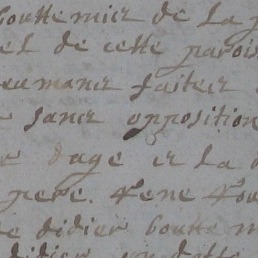 bouttemier de La p
el de cette parois
eumaner faittes
sancs opposition
dage et La
pere. Rene Rou
didier boutte m
didier